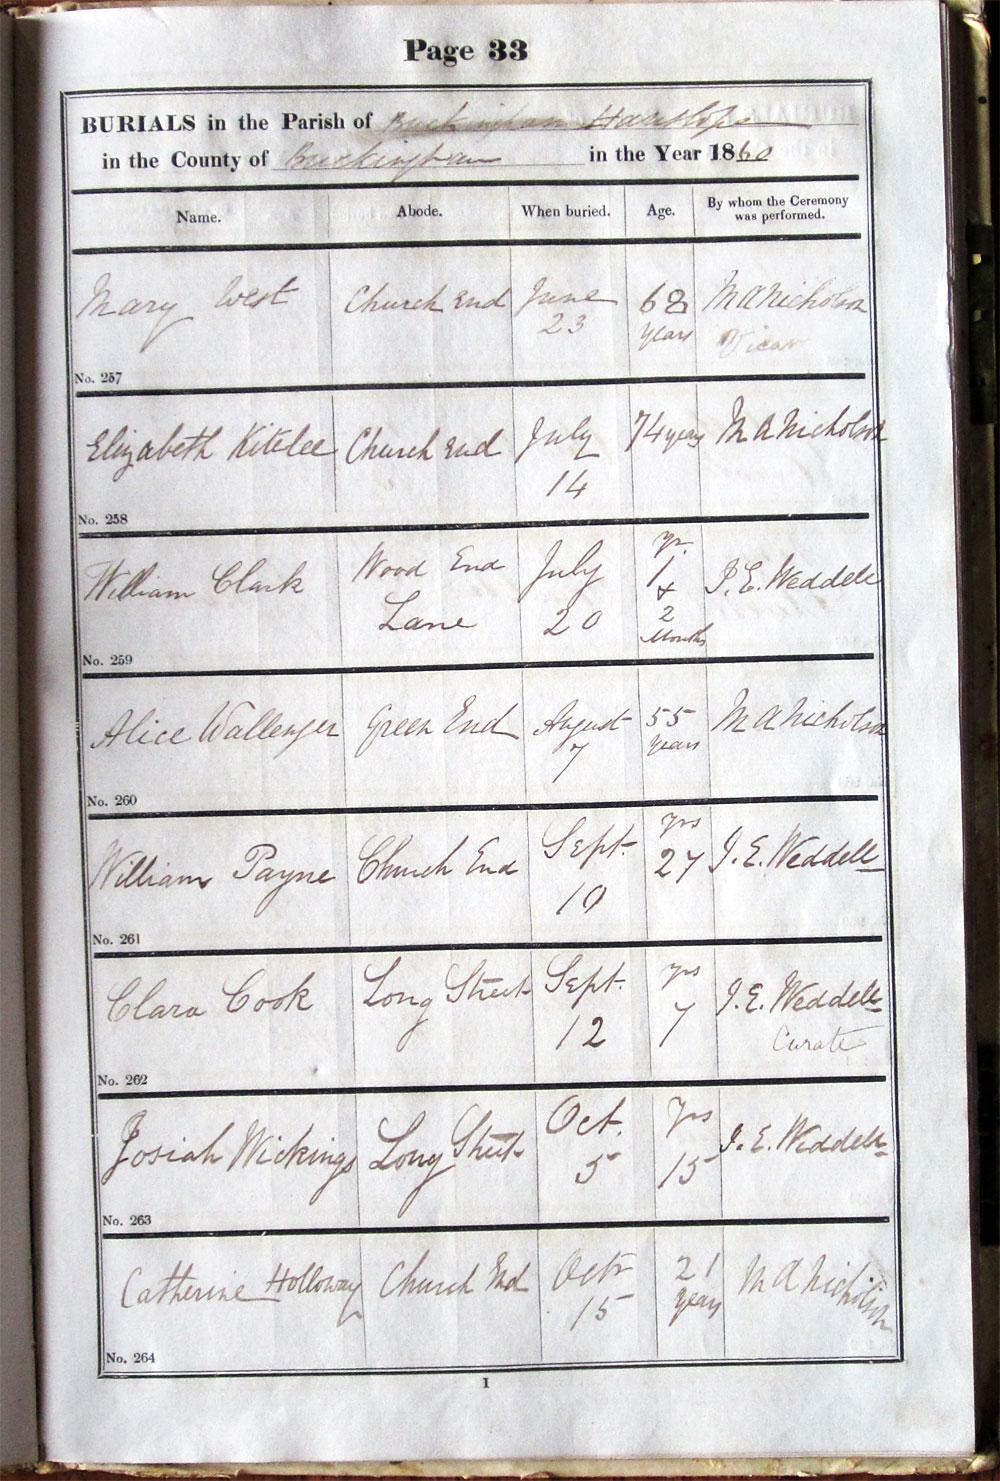 Page 33
BURIALS in the Parish of Buckingham Hanslope
in the County of Buckingham in the Year 1860
Name. Abode. When buried. Age. By whom the Ceremony
was performed.
Mary West Church End June 68 M A Nicholson
23 years Vicar
No. 257
Elizabeth Kitelee Church End July 74 years M A Nicholson
14
No. 258
yr.
William Clark Wood End July 1 J. E. Weddell
Lane 20 &
2
Months
No. 259
Alice Wallenger Green End August 55 M A Nicholson
7 years
No. 260
yrs
William Payne Church End Sept. 27 J. E. Weddell
10
No. 261
Clara Cook Long Street Sept. yrs J. E. Weddell
12 7 Curate
No. 262
Oct. yrs
Josiah Wickings Long Street 5 15 J. E. Weddell
No. 263
Catherine Holloway Church End Octr 21 M A Nicholson
15 years
No. 264
I